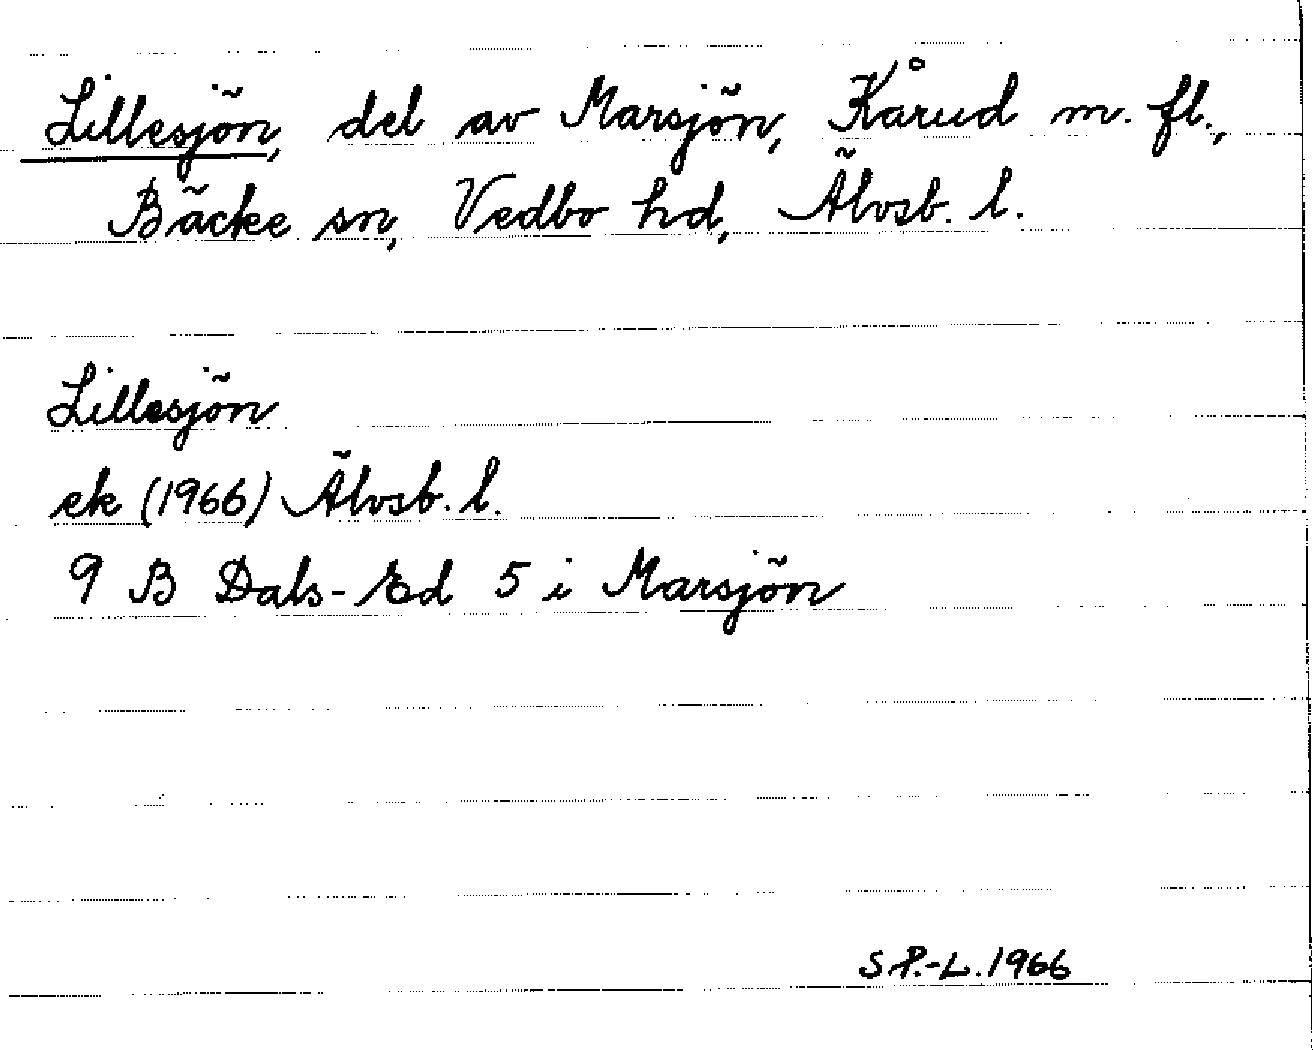 Lillesjön, del av Marsjön, Kårud m. fl.,
Bäcke sn, Vedbo hd, Älvsb. l.
Lillesjön
ek (1966) Älvsb. l.
9 B Dals-Ed 5 i Marsjön
S P.-L. 1966